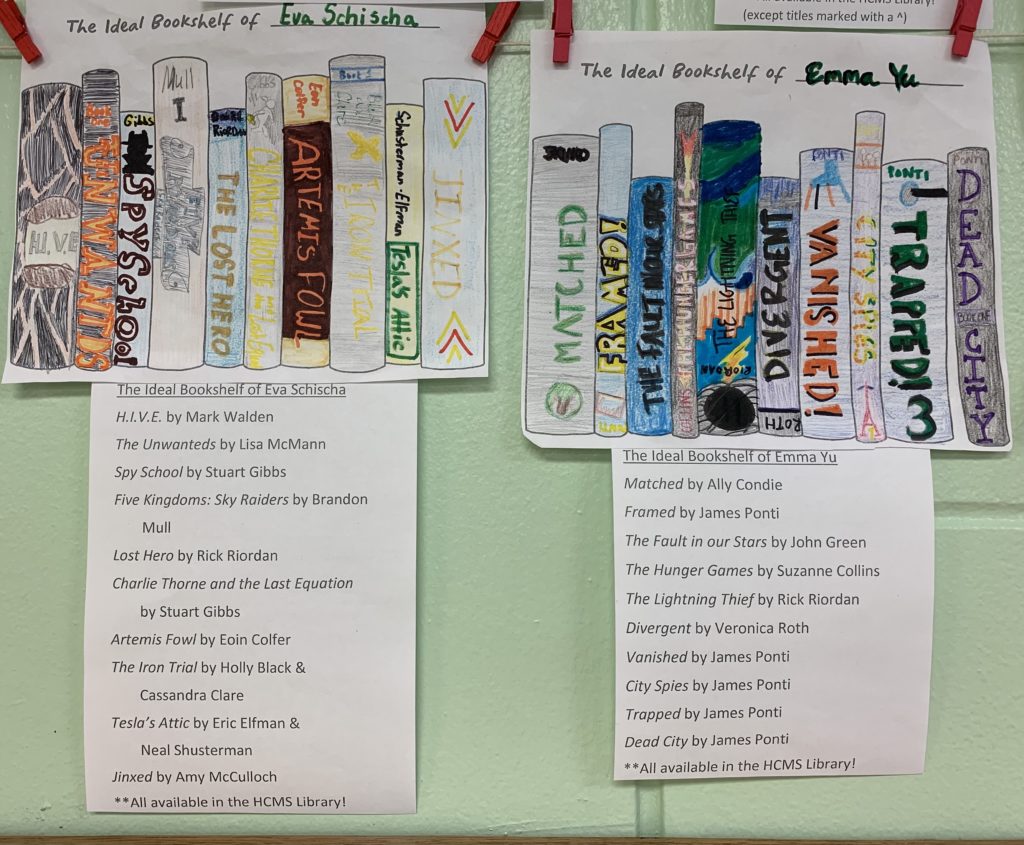 All available in the HCMS Library!
(except titles marked with a ^)
The Ideal Bookshelf of Eva Schischa
H.I.V.E.
THE UNWANTEDS
Gibbs
SPY SCHOOL
Mull
I
RIORDAN
THE LOST HERO
GIBBS
CHARLIE THORNE AND THE Last Equation
Eoin
Colfer
ARTEMIS FOWL
Book 1
Shusterman-Elfman
Tesla's Attic
JINXED
The Ideal Bookshelf of Eva Schischa
H.I.V.E. by Mark Walden
The Unwanteds by Lisa McMann
Spy School by Stuart Gibbs
Five Kingdoms: Sky Raiders by Brandon
Mull
Lost Hero by Rick Riordan
Charlie Thorne and the Last Equation
by Stuart Gibbs
Artemis Fowl by Eoin Colfer
The Iron Trial by Holly Black &
Cassandra Clare
Tesla's Attic by Eric Elfman &
Neal Shusterman
Jinxed by Amy McCulloch
**All available in the HCMS Library!
The Ideal Bookshelf of Emma Yu
MATCHED
FRAMED!
THE FAULT IN OUR STARS
THE HUNGER GAMES
COLLINS
THE LIGHTENING THIEF
RIORDAN
DIVERGENT
ROTH
PONTI
VANISHED!
CITY SPIES
PONTI
TRAPPED! 3
PONTI
DEAD
BOOK ONE
CITY
The Ideal Bookshelf of Emma Yu
Matched by Ally Condie
Framed by James Ponti
The Fault in our Stars by John Green
The Hunger Games by Suzanne Collins
The Lightning Thief by Rick Riordan
Divergent by Veronica Roth
Vanished by James Ponti
City Spies by James Ponti
Trapped by James Ponti
Dead City by James Ponti
**All available in the HCMS Library!